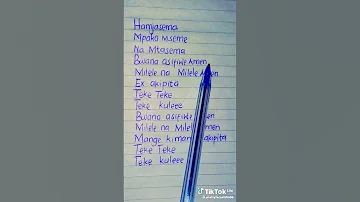 Hamjasema
Mpako mseme
Na Mtasema
Bwana asifiwe Amen
Milele na Milele Amen
Ex akipita
Teke Teke
Teke kuleee
Bwana asifiwe Amen
Milele na Milele Amen
Mange kimambi akipita
Teke Teke
Teke kuleee
TikTok